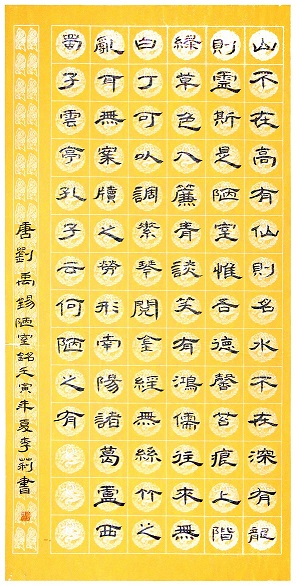 山不在高有仙則名水不在深有龍
則靈斯是陋室惟吾德馨苔痕上階
綠草色入簾青談笑有鴻儒往來無
白丁可以調素琴閱金經無絲竹之
亂耳無案牘之勞形南陽諸葛廬西
蜀子雲亭孔子云何陋之有
唐劉禹錫陋室銘壬寅年夏李莉書